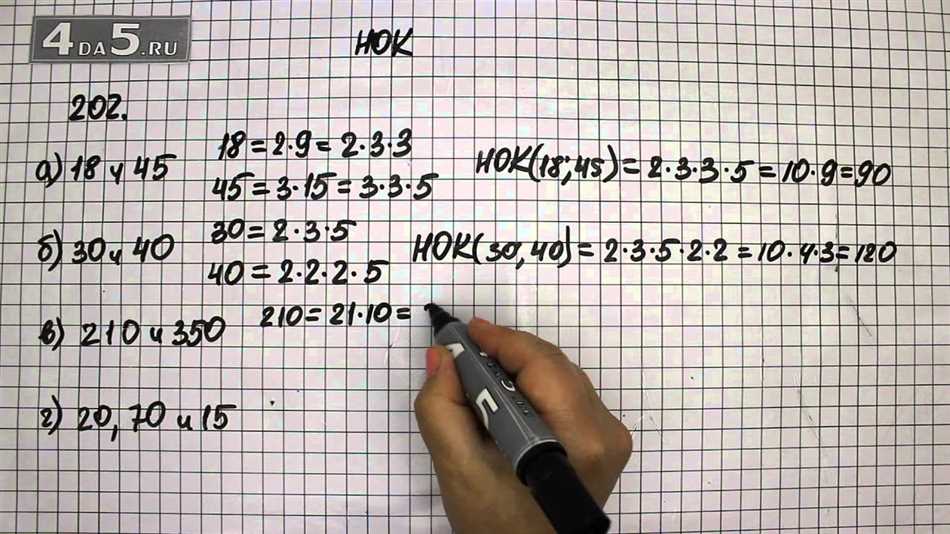 4DA5.RU
НОК
202.
а) 18 и 45
18 = 2·9 = 2·3·3
45 = 3·15 = 3·3·5
НОК(18;45) = 2·3·3·5 = 10·9=90
б) 30 и 40
30 = 2·3·5
40 = 2·2·2·5
НОК(30,40) = 2·3·5·2·2 = 10·4·3=120
в) 210 и 350
210 = 21·10 =
г) 20, 70 и 15